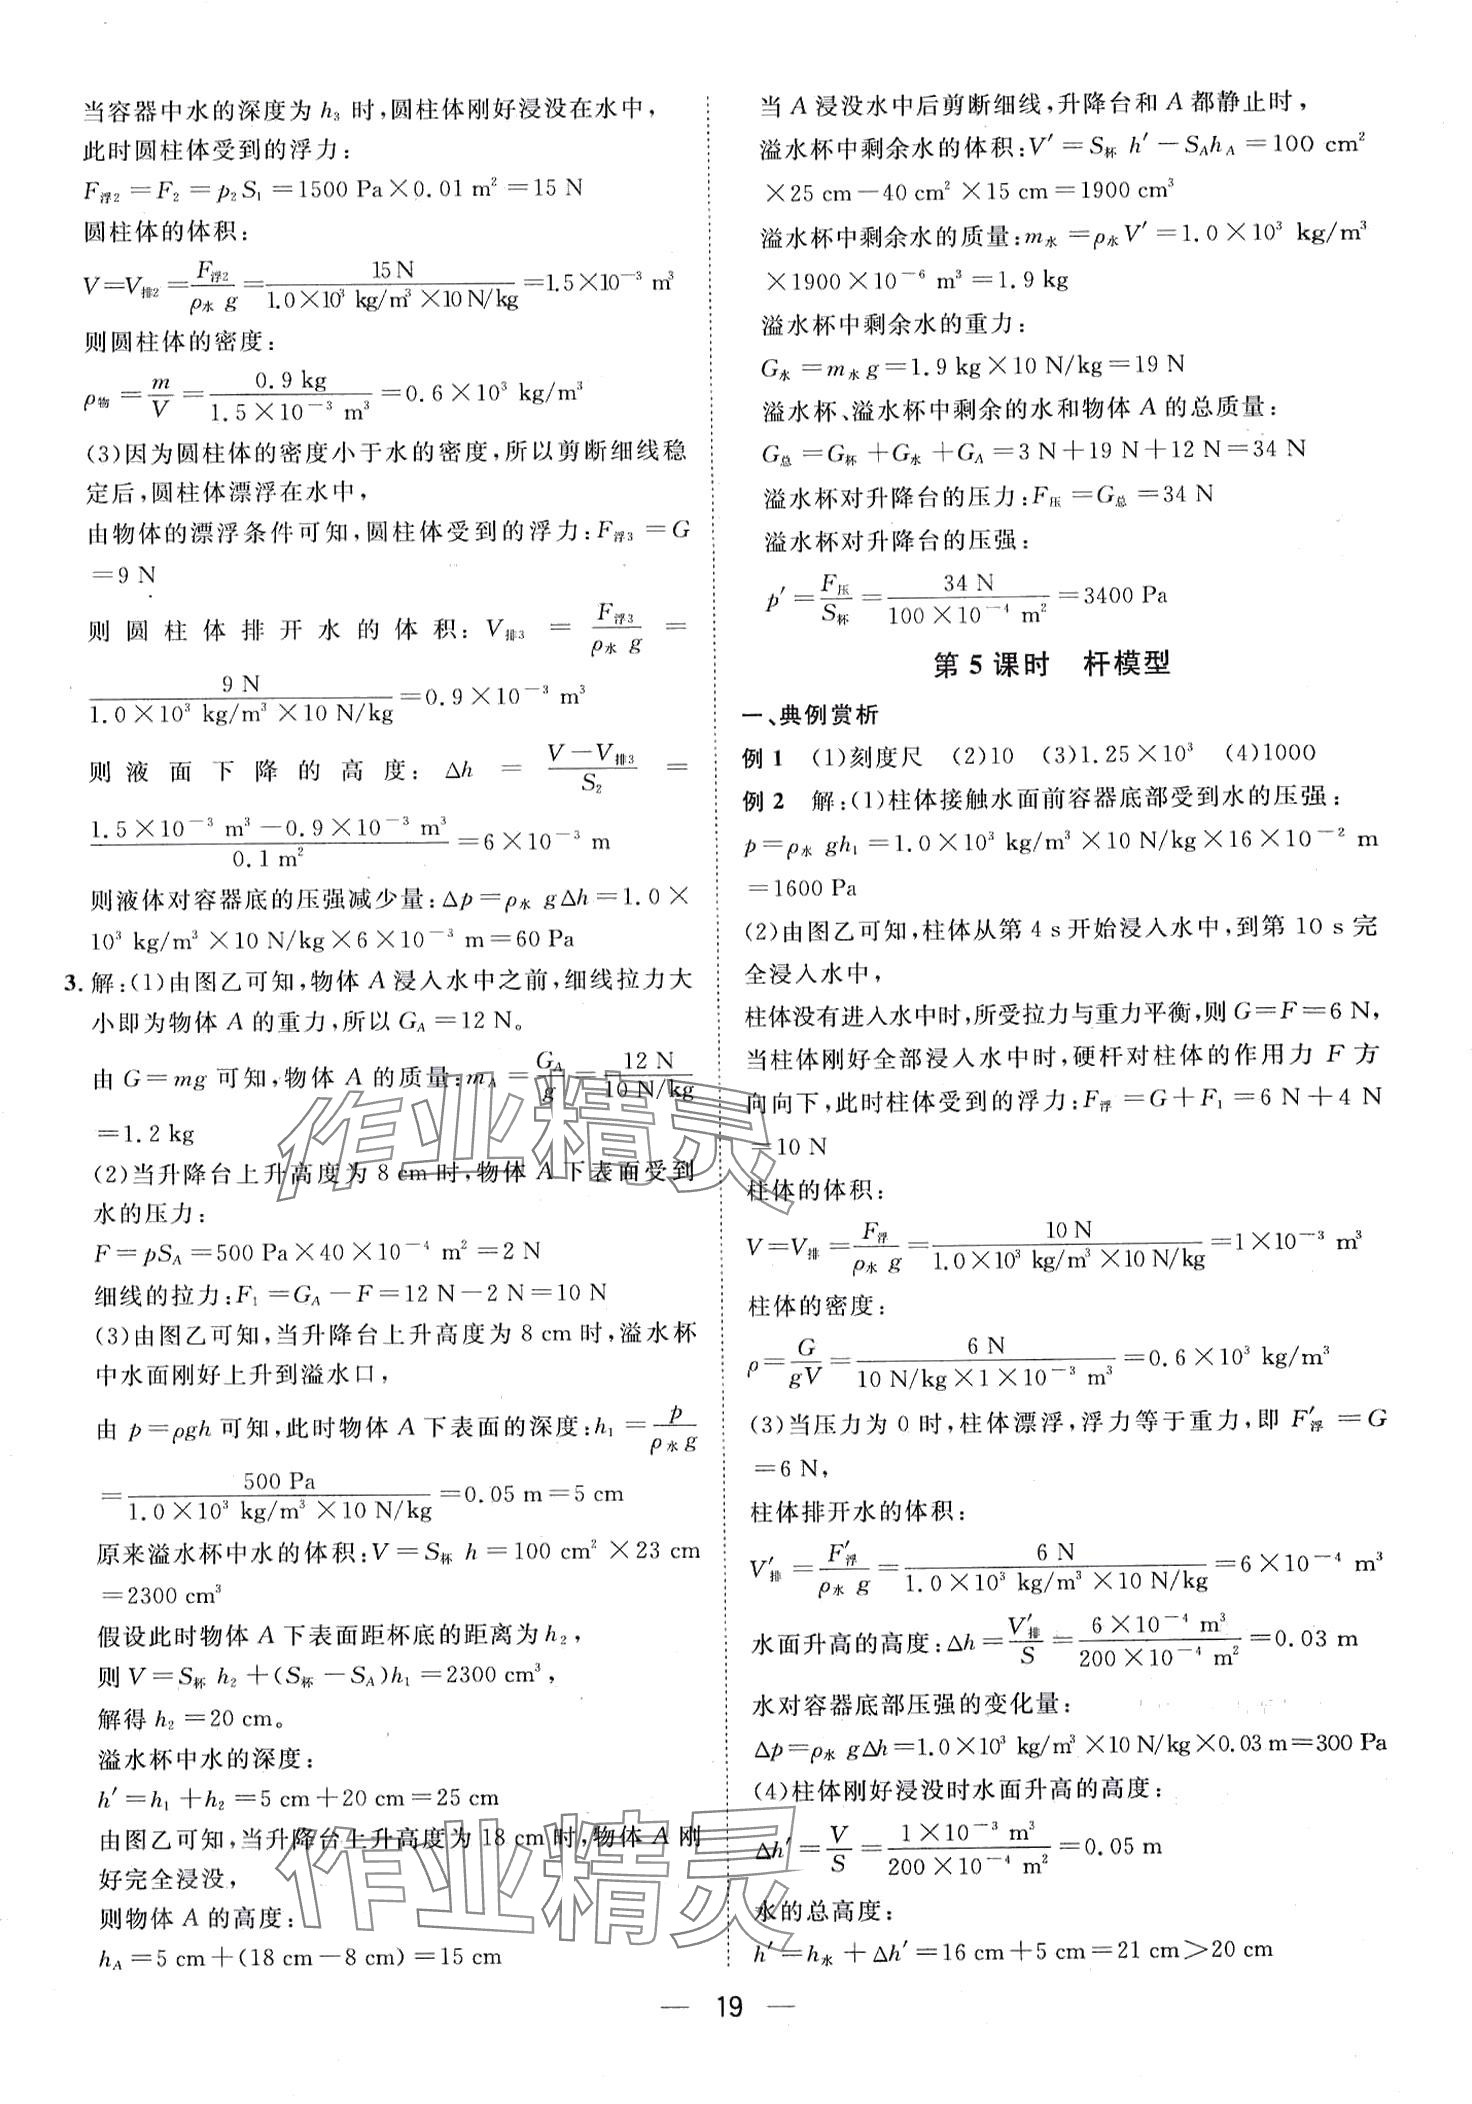 当容器中水的深度为 h₃ 时,圆柱体刚好浸没在水中,
此时圆柱体受到的浮力:
F浮2=F₂=p₂S₁=1500 Pa×0.01 m²=15 N
圆柱体的体积:
V=V排2=F浮2/(ρ水 g)=15 N/(1.0×10³ kg/m³×10 N/kg)=1.5×10⁻³ m³
则圆柱体的密度:
ρ物=m/V=0.9 kg/(1.5×10⁻³ m³)=0.6×10³ kg/m³
(3)因为圆柱体的密度小于水的密度,所以剪断细线稳
定后,圆柱体漂浮在水中,
由物体的漂浮条件可知,圆柱体受到的浮力:F浮3=G
=9 N
则圆柱体排开水的体积:V排3=F浮3/(ρ水 g)=
9 N/(1.0×10³ kg/m³×10 N/kg)=0.9×10⁻³ m³
则液面下降的高度:Δh=(V-V排3)/S₂=
(1.5×10⁻³ m³-0.9×10⁻³ m³)/(0.1 m²)=6×10⁻³ m
则液体对容器底的压强减少量:Δp=ρ水 gΔh=1.0×
10³ kg/m³×10 N/kg×6×10⁻³ m=60 Pa
3. 解:(1)由图乙可知,物体 A 浸入水中之前,细线拉力大
小即为物体 A 的重力,所以 G_A=12 N。
由 G=mg 可知,物体 A 的质量:m_A=G_A/g 12 N/(10 N/kg)
=1.2 kg
(2)当升降台上升高度为 8 cm 时,物体 A 下表面受到
水的压力:
F=pS_A=500 Pa×40×10⁻⁴ m²=2 N
细线的拉力:F₁=G_A-F=12 N-2 N=10 N
(3)由图乙可知,当升降台上升高度为 8 cm 时,溢水杯
中水面刚好上升到溢水口,
由 p=ρgh 可知,此时物体 A 下表面的深度:h₁=p/(ρ水 g)
=500 Pa/(1.0×10³ kg/m³×10 N/kg)=0.05 m=5 cm
原来溢水杯中水的体积:V=S杯 h=100 cm²×23 cm
=2300 cm³
假设此时物体 A 下表面距杯底的距离为 h₂,
则 V=S杯 h₂+(S杯-S_A)h₁=2300 cm³,
解得 h₂=20 cm。
溢水杯中水的深度:
h′=h₁+h₂=5 cm+20 cm=25 cm
由图乙可知,当升降台上升高度为 18 cm 时,物体 A 刚
好完全浸没,
则物体 A 的高度:
h_A=5 cm+(18 cm-8 cm)=15 cm
当 A 浸没水中后剪断细线,升降台和 A 都静止时,
溢水杯中剩余水的体积:V′=S杯 h′-S_A h_A=100 cm²
×25 cm-40 cm²×15 cm=1900 cm³
溢水杯中剩余水的质量:m水=ρ水V′=1.0×10³ kg/m³
×1900×10⁻⁶ m³=1.9 kg
溢水杯中剩余水的重力:
G水=m水 g=1.9 kg×10 N/kg=19 N
溢水杯、溢水杯中剩余的水和物体 A 的总质量:
G总=G杯+G水+G_A=3 N+19 N+12 N=34 N
溢水杯对升降台的压力:F压=G总=34 N
溢水杯对升降台的压强:
p′=F压/S杯=34 N/(100×10⁻⁴ m²)=3400 Pa
第 5 课时 杆模型
一、典例赏析
例 1 (1)刻度尺 (2)10 (3)1.25×10³ (4)1000
例 2 解:(1)柱体接触水面前容器底部受到水的压强:
p=ρ水 gh₁=1.0×10³ kg/m³×10 N/kg×16×10⁻² m
=1600 Pa
(2)由图乙可知,柱体从第 4 s 开始浸入水中,到第 10 s 完
全浸入水中,
柱体没有进入水中时,所受拉力与重力平衡,则 G=F=6 N,
当柱体刚好全部浸入水中时,硬杆对柱体的作用力 F 方
向向下,此时柱体受到的浮力:F浮=G+F₁=6 N+4 N
=10 N
柱体的体积:
V=V排=F浮/(ρ水 g)=10 N/(1.0×10³ kg/m³×10 N/kg)=1×10⁻³ m³
柱体的密度:
ρ=G/(gV)=6 N/(10 N/kg×1×10⁻³ m³)=0.6×10³ kg/m³
(3)当压力为 0 时,柱体漂浮,浮力等于重力,即 F′浮=G
=6 N,
柱体排开水的体积:
V′排=F′浮/(ρ水 g)=6 N/(1.0×10³ kg/m³×10 N/kg)=6×10⁻⁴ m³
水面升高的高度:Δh=V′排/S=6×10⁻⁴ m³/(200×10⁻⁴ m²)=0.03 m
水对容器底部压强的变化量:
Δp=ρ水 gΔh=1.0×10³ kg/m³×10 N/kg×0.03 m=300 Pa
(4)柱体刚好浸没时水面升高的高度:
Δh′=V/S=1×10⁻³ m³/(200×10⁻⁴ m²)=0.05 m
水的总高度:
h′=h水+Δh′=16 cm+5 cm=21 cm>20 cm
— 19 —
作业精灵
作业精灵